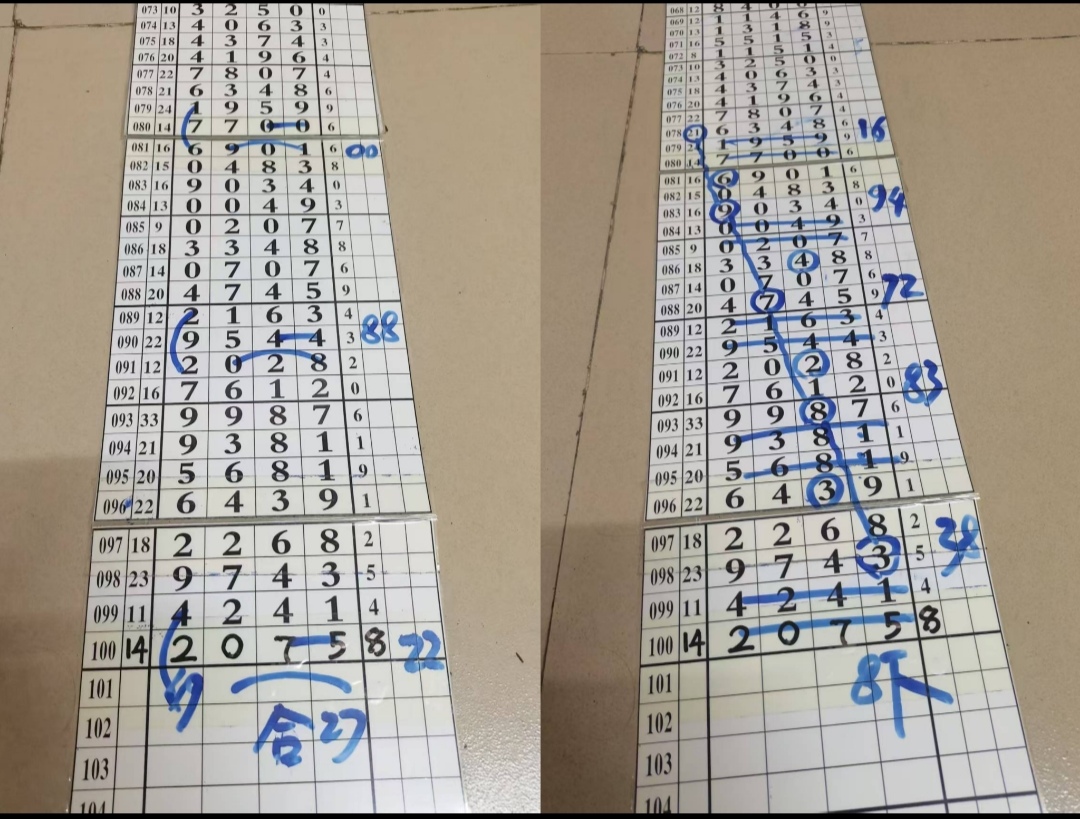 073 10 3 2 5 0 0
074 13 4 0 6 3 3
075 18 4 3 7 4 3
076 20 4 1 9 6 4
077 22 7 8 0 7 4
078 21 6 3 4 8 6
079 24 1 9 5 9 9
080 14 7 7 0 0 6
081 16 6 9 0 1 6 00
082 15 0 4 8 3 8
083 16 9 0 3 4 0
084 13 0 0 4 9 3
085 9 0 2 0 7 7
086 18 3 3 4 8 8
087 14 0 7 0 7 6
088 20 4 7 4 5 9
089 12 2 1 6 3 4
090 22 9 5 4 4 3 88
091 12 2 0 2 8 2
092 16 7 6 1 2 0
093 33 9 9 8 7 6
094 21 9 3 8 1 1
095 20 5 6 8 1 9
096 22 6 4 3 9 1
097 18 2 2 6 8 2
098 23 9 7 4 3 5
099 11 4 2 4 1 4
100 14 2 0 7 5 8 22
101
102 合27
103
104
068 12 8 4 0 0
069 12 1 1 4 6
070 13 1 3 1 8
071 16 5 5 1 5
072 8 1 1 5 1
073 10 3 2 5 0
074 13 4 0 6 3 3
075 18 4 3 7 4 3
076 20 4 1 9 6 4
077 22 7 8 0 7 4
078 21 6 3 4 8 6 16
079 24 1 9 5 9 9
080 14 7 7 0 0 6
081 16 6 9 0 1 6
082 15 0 4 8 3 8
083 16 9 0 3 4 0 94
084 13 0 0 4 9 3
085 9 0 2 0 7 7
086 18 3 3 4 8 8
087 14 0 7 0 7 6
088 20 4 7 4 5 9 72
089 12 2 1 6 3 4
090 22 9 5 4 4 3
091 12 2 0 2 8 2
092 16 7 6 1 2 0 83
093 33 9 9 8 7 6
094 21 9 3 8 1 1
095 20 5 6 8 1 9
096 22 6 4 3 9 1
097 18 2 2 6 8 2 38
098 23 9 7 4 3 5
099 11 4 2 4 1 4
100 14 2 0 7 5 8
101 8下
102
103
104